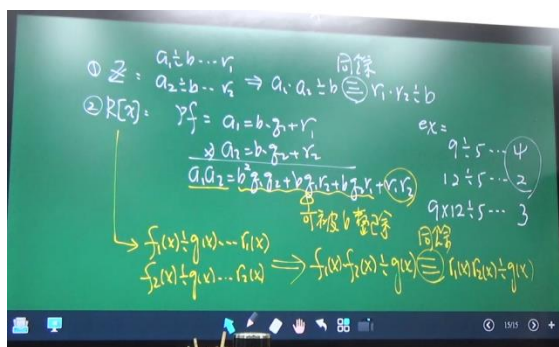 ① Z: a₁÷b⋯r₁
a₂÷b⋯r₂ ⇒ a₁·a₂÷b ≡ r₁·r₂÷b
同餘
② R[x]:
pf= a₁=b·q₁+r₁
×) a₂=b·q₂+r₂
a₁a₂=b²q₁q₂+bq₁r₂+bq₂r₁+r₁r₂
可被b整除
ex=
9÷5⋯4
12÷5⋯2
9×12÷5⋯3
f₁(x)÷g(x)⋯r₁(x)
f₂(x)÷g(x)⋯r₂(x) ⇒ f₁(x)f₂(x)÷g(x) ≡ r₁(x)r₂(x)÷g(x)
同餘
15/15